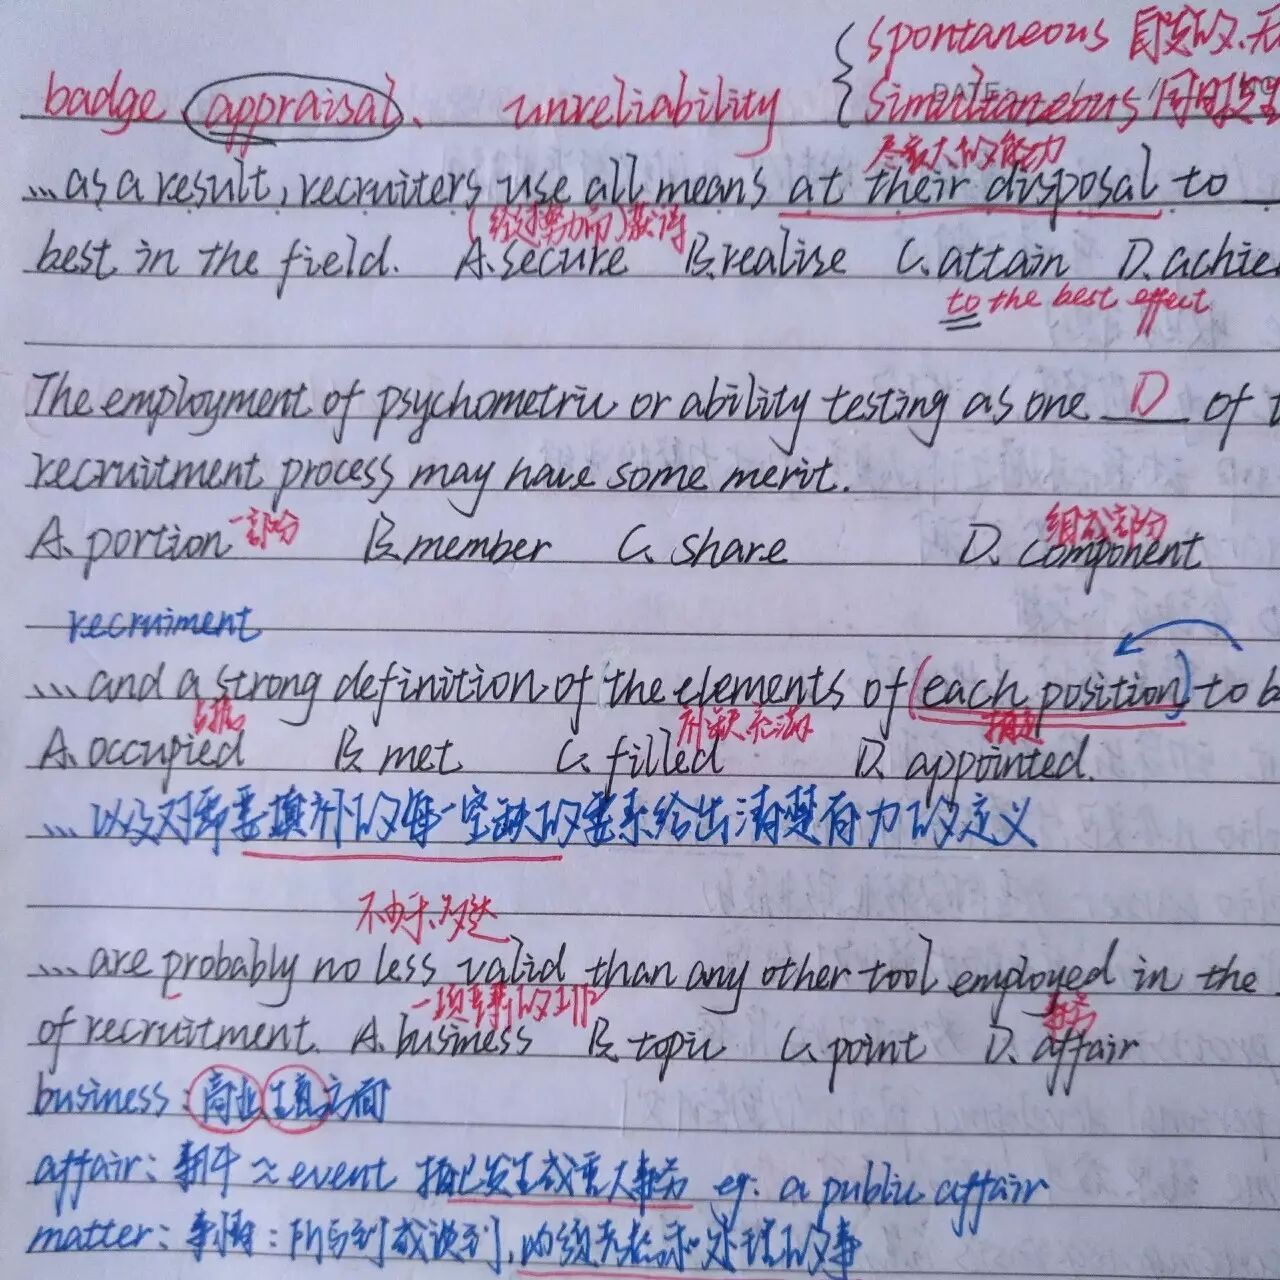 spontaneous 自发的、无
badge appraisal、 unreliability simultaneous 同时发生
尽最大的能力
...as a result, recruiters use all means at their disposal to
(经过努力而)获得
best in the field. A. secure B. realise C. attain D. achie
to the best effect
The employment of psychometric or ability testing as one D of t
recruitment process may have some merit.
一部分 组成部分
A. portion B. member C. share D. component
recruiment
...and a strong definition of the elements of (each position) to b
补缺、充满
A. occupied B. met C. filled D. appointed.
...以及对需要填补的每一空缺的要素给出清楚有力的定义
不如于、
...are probably no less valid than any other tool employed in the
事务
of recruitment. A. business B. topic C. point D. affair
business: 商业
affair: 事件 ≈ event 指已发生或重大事务 eg: a public affair
matter: 事情: 所写到或谈到, 考虑和处理的事